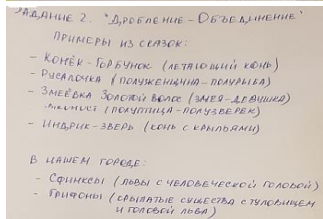 ЗАДАНИЕ 2. "ДРОБЛЕНИЕ-ОБЪЕДИНЕНИЕ"
ПРИМЕРЫ ИЗ СКАЗОК:
- КОНЁК-ГОРБУНОК (ЛЕТАЮЩИЙ КОНЬ)
- РУСАЛОЧКА (ПОЛУЖЕНЩИНА-ПОЛУРЫБА)
- ЗМЕЁВКА ЗОЛОТОЙ ВОЛОС (ЗМЕЯ-ДЕВУШКА)
(ПОЛУПТИЦА-ПОЛУЗВЕРЕК)
- ИНДРИК-ЗВЕРЬ (КОНЬ С КРЫЛЬЯМИ)
В НАШЕМ ГОРОДЕ:
- СФИНКСЫ (ЛЬВЫ С ЧЕЛОВЕЧЕСКОЙ ГОЛОВОЙ)
- ГРИФОНЫ (КРЫЛАТЫЕ СУЩЕСТВА С ТУЛОВИЩЕМ
И ГОЛОВОЙ ЛЬВА)